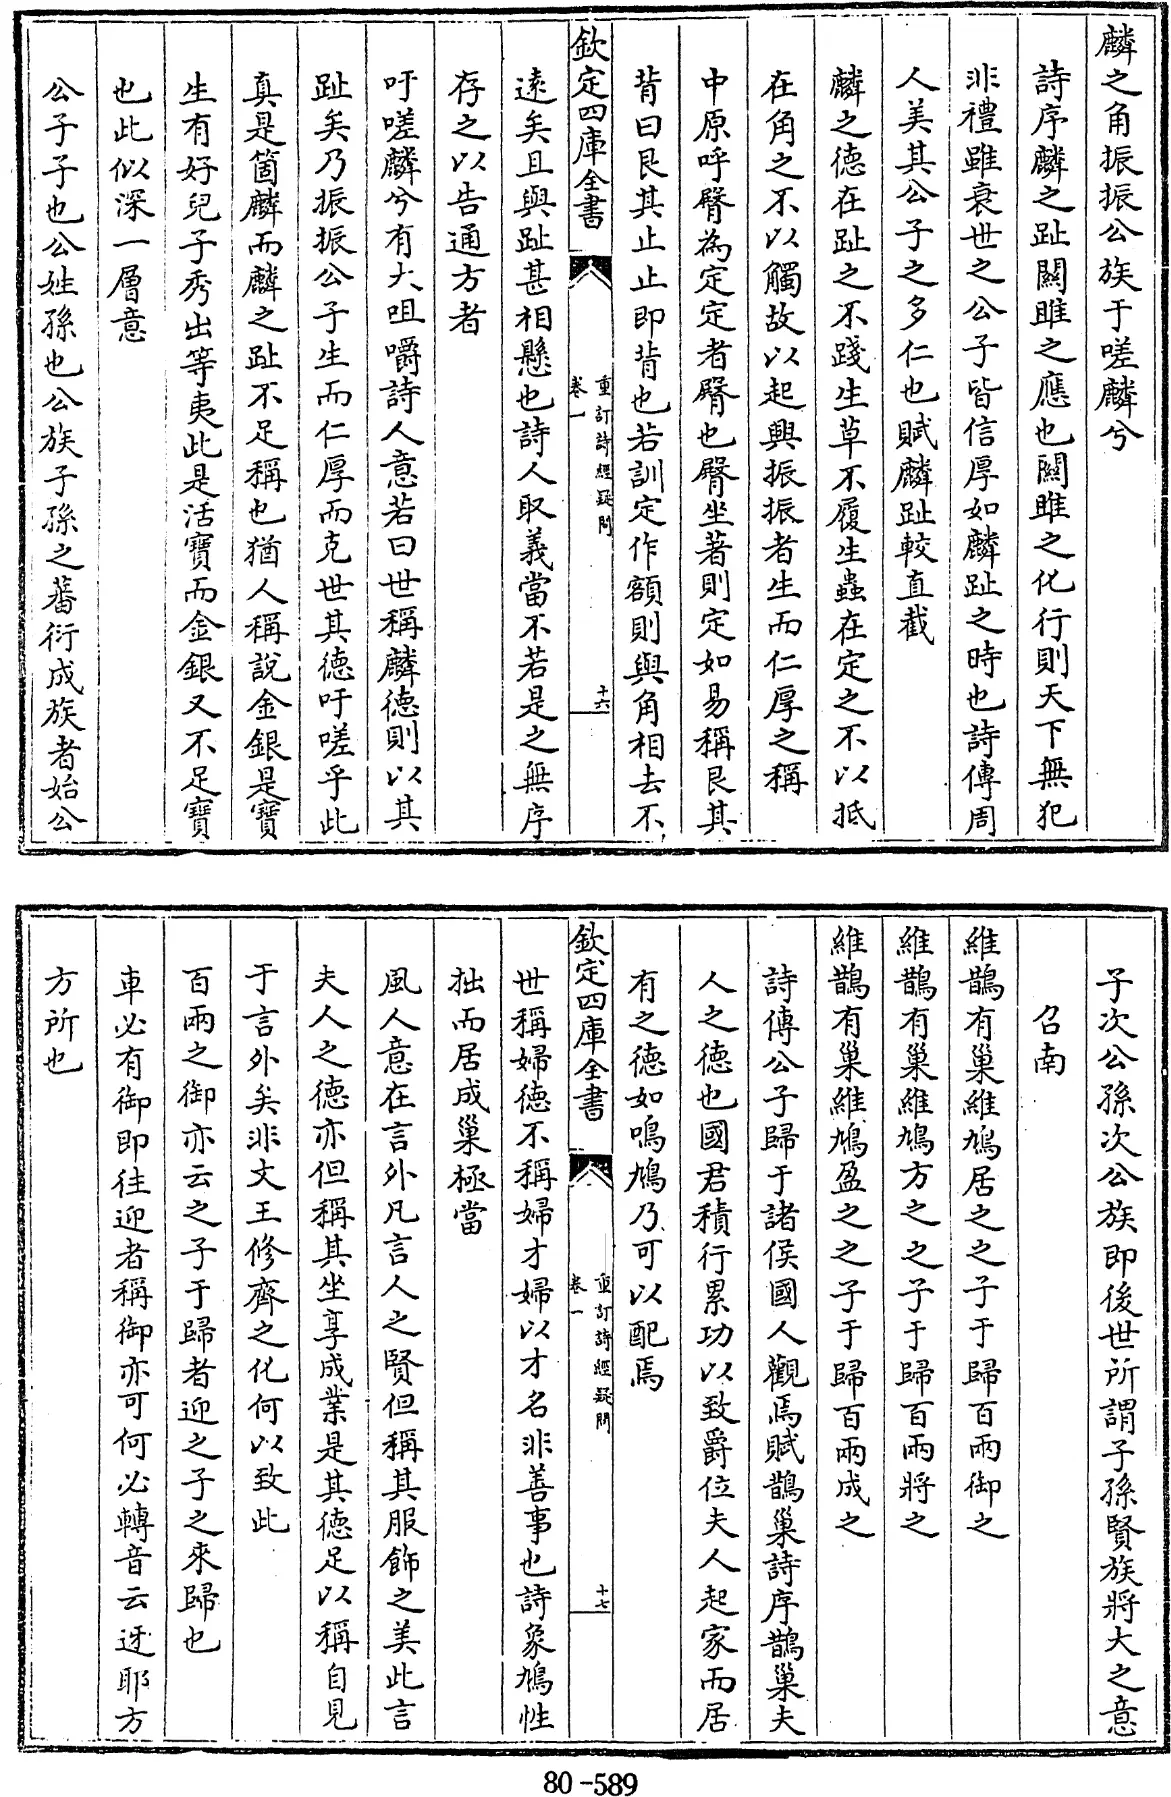 麟之角振振公族于嗟麟兮
詩序麟之趾關雎之應也關雎之化行則天下無犯
非禮雖衰世之公子皆信厚如麟趾之時也詩傳周
人美其公子之多仁也賦麟趾較直截
麟之德在趾之不踐生草不履生蟲在定之不以抵
在角之不以觸故以起興振振者生而仁厚之稱
中原呼臀為定定者臀也臀坐著則定如易稱艮其
背曰艮其止止即背也若訓定作額則與角相去不
欽定四庫全書
重訂詩經疑問
卷一
十六
遠矣且與趾甚相懸也詩人取義當不若是之無序
存之以告通方者
吁嗟麟兮有大咀嚼詩人意若曰世稱麟德則以其
趾矣乃振振公子生而仁厚而克世其德吁嗟乎此
真是箇麟而麟之趾不足稱也猶人稱說金銀是寶
生有好兒子秀出等夷此是活寶而金銀又不足寶
也此似深一層意
公子子也公姓孫也公族子孫之蕃衍成族者始公
子次公孫次公族即後世所謂子孫賢族將大之意
召南
維鵲有巢維鳩居之之子于歸百兩御之
維鵲有巢維鳩方之之子于歸百兩將之
維鵲有巢維鳩盈之之子于歸百兩成之
詩傳公子歸于諸侯國人觀焉賦鵲巢詩序鵲巢夫
人之德也國君積行累功以致爵位夫人起家而居
有之德如鳴鳩乃可以配焉
欽定四庫全書
重訂詩經疑問
卷一
十七
世稱婦德不稱婦才婦以才名非善事也詩象鳩性
拙而居成巢極當
風人意在言外凡言人之賢但稱其服飾之美此言
夫人之德亦但稱其坐享成業是其德足以稱自見
于言外矣非文王修齊之化何以致此
百兩之御亦云之子于歸者迎之子之來歸也
車必有御即往迎者稱御亦可何必轉音云迓耶方
方所也
80-589